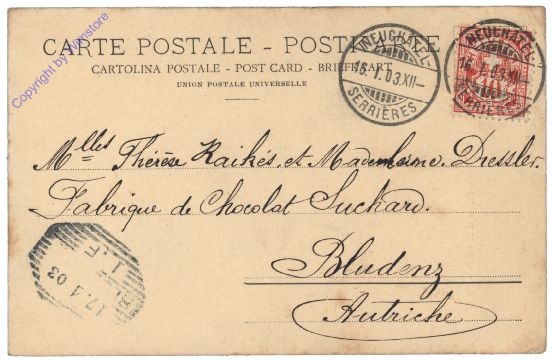 Copyright by Numstore
CARTE POSTALE - POSTKARTE
CARTOLINA POSTALE - POST CARD - BRIEFKAART
UNION POSTALE UNIVERSELLE
NEUCHATEL
16. I. 03.XII–
SERRIÈRES
NEUCHATEL
16. I. 03.XII
SERRIÈRES
Mlles Thérèse Raikés et Dressler.
Fabrique de Chocolat Suchard.
Bludenz
Autriche
17.1 03
1. F